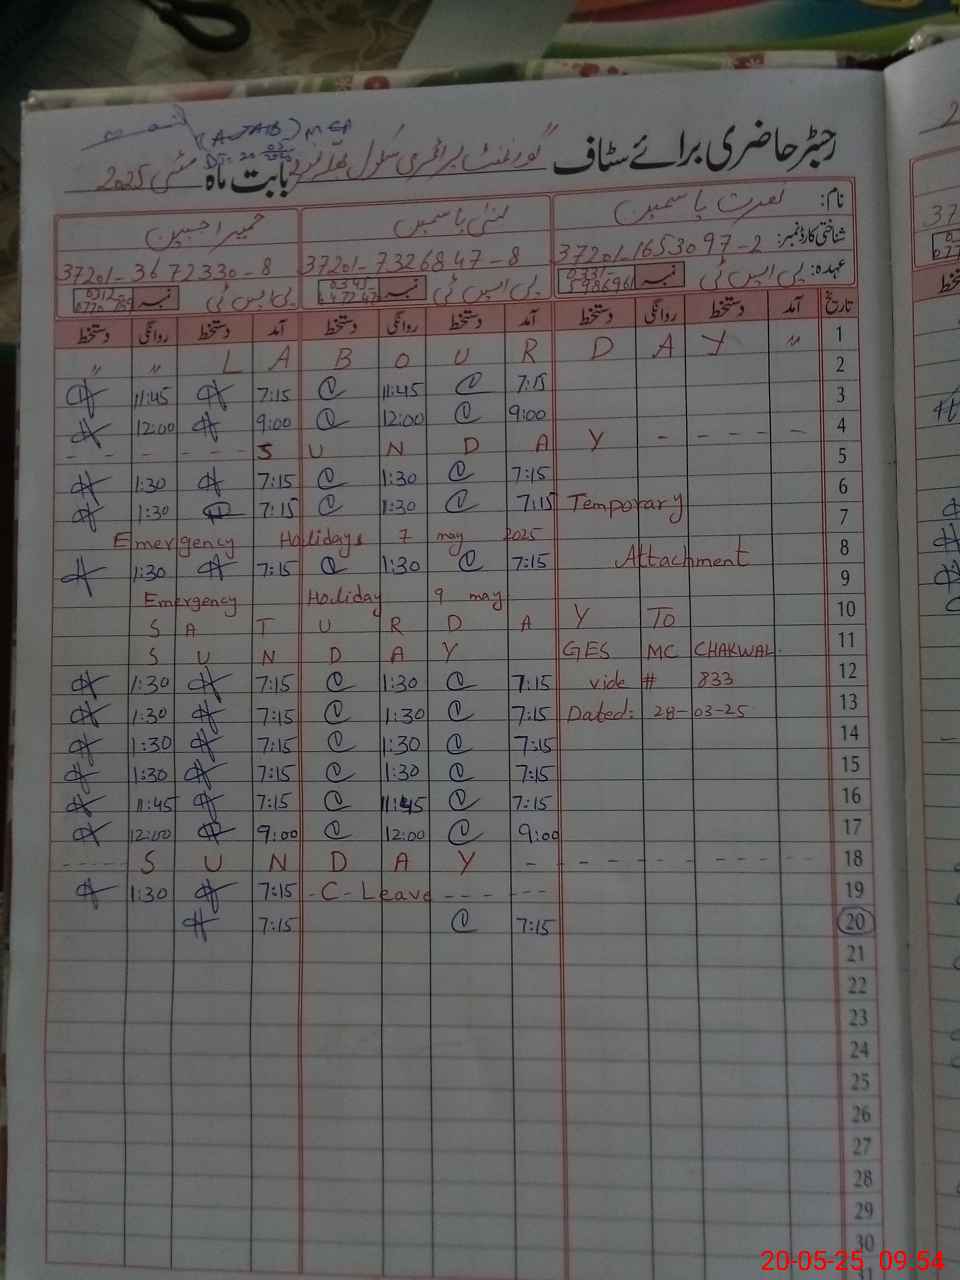 رجسٹر حاضری برائے سٹاف گورنمنٹ پرائمری سکول بابت ماہ مئی 2025
(AJAB) MEA
نام: نصرت یاسمین
لبنیٰ یاسمین
حمیرا جبین
شناختی کارڈ نمبر: 37201-1653097-2
37201-7326847-8
37201-3672330-8
عہدہ: پی ایس ٹی نمبر
پی ایس ٹی نمبر
پی ایس ٹی نمبر
تاریخ آمد دستخط روانگی دستخط آمد دستخط روانگی دستخط آمد دستخط روانگی دستخط
" " L A B O U R D A Y " 1
2
11:45 7:15 11:45 7:15 3
12:00 9:00 12:00 9:00 4
- - - - - - S U N D A Y - - - - - 5
1:30 7:15 1:30 7:15 6
1:30 7:15 1:30 7:15 Temporary 7
Emergency Holidays 7 may 2025 8
1:30 7:15 1:30 7:15 Attachment 9
Emergency Holiday 9 may 10
S A T U R D A Y TO 11
S U N D A Y GES MC CHAKWAL 12
1:30 7:15 1:30 7:15 vide # 833 13
1:30 7:15 1:30 7:15 Dated: 28-03-25 14
1:30 7:15 1:30 7:15 15
1:30 7:15 1:30 7:15 16
11:45 7:15 11:45 7:15 17
12:00 9:00 12:00 9:00 18
- - - - - S U N D A Y - - - - - - - - 19
1:30 7:15 - C - Leave - - - - - - 20
7:15 7:15 21
22
23
24
25
26
27
28
29
30
31
20-05-25 09.54